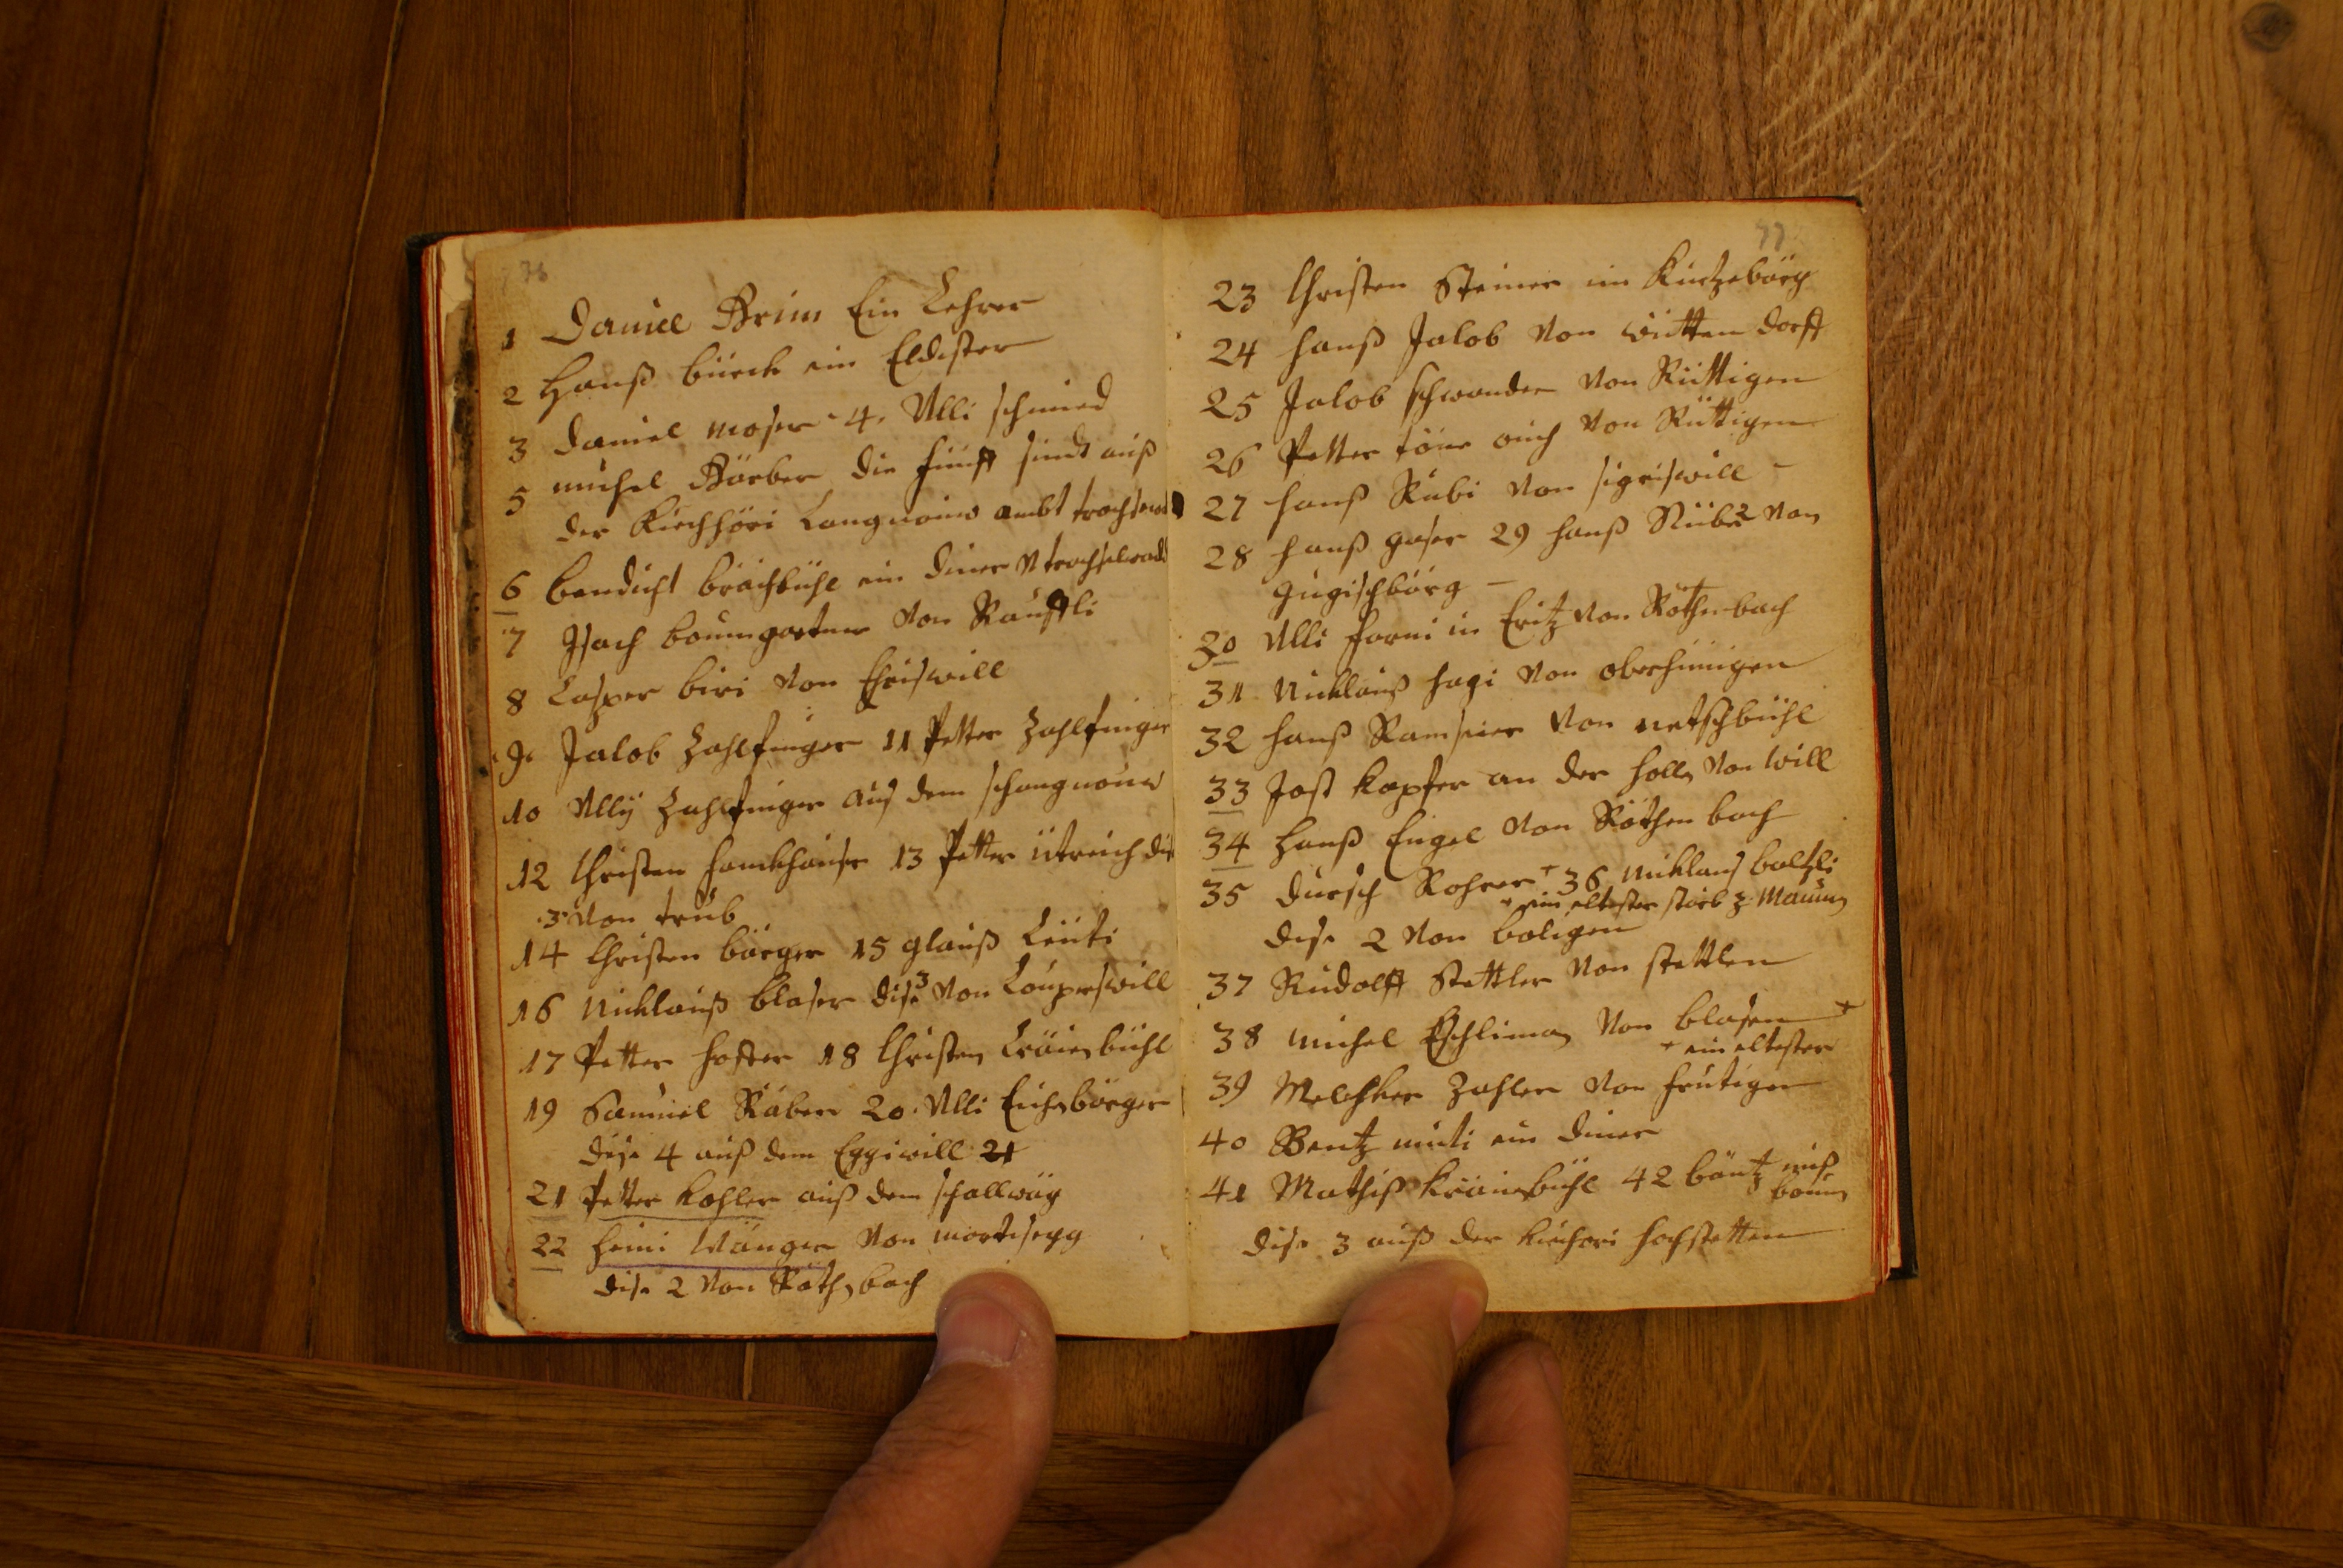 76
1 Daniel Grim Ein Lehrer
2 Hanß bürck ein Eldister
3 daniel moser 4. Ulli schmied
5 michel Gärber die fünff sindt auß
der Kirchhöri Langnauw ambt trachselwald
6 bendicht brächbühl ein diener v trachselwald
7 Isach boumgartner von Rauffli
8 Casper biri von Eriswill
9. Jakob Zahlfinger 11 Petter Zahlfinger
10 Ullÿ Zahlfinger aus dem schangnouw
12 Christen hauckhauser 13 Petter ütreich die
3 von trub
14 Christen bärger 15 Glauß Lüüti
16 Nicklauß blaser dise 3 von Louperswill
17 Petter hoffer 18 Christen Cräienbühl
19 Samuel Räber 20. Ulli Eichenbärger
dise 4 auß dem Eggiwill 21
21 Petter Kohler auß dem schallwäg
22 Heini Wänger von martisegg
dise 2 von Röthenbach
77
23 Christen Steiner im Kurtzebärg
24 hanß Jakob von wittendorff
25 Jakob schwander von Rüttigen
26 Petter töne auch von Rüttigen
27 hanß Rubi von sigriswill
28 hanß gaser 29 hanß 2 von
gugischbärg
30 Ulli farni in Eritz von Röthenbach
31 Nicklauß hagi von oberhünigen
32 hanß Ramseier von netschbühl
33 Jost kopfer an der hollen von will
34 Hanß Engel von Röthenbach
35 dursch Rohrer + 36 nicklaus baltzli
+ ein eltester starb z Manum
dise 2 von boligen
37 Rudolff Stettler von stettlen
38 michel Eschliman von blasen +
+ ein eltester
39 Melchker Zahler von frutigen
40 Bentz miti ein diener
41 Mathiß kräienbühl 42 bäntz nuß
boum
dise 3 auß der kirchöri hochstetten